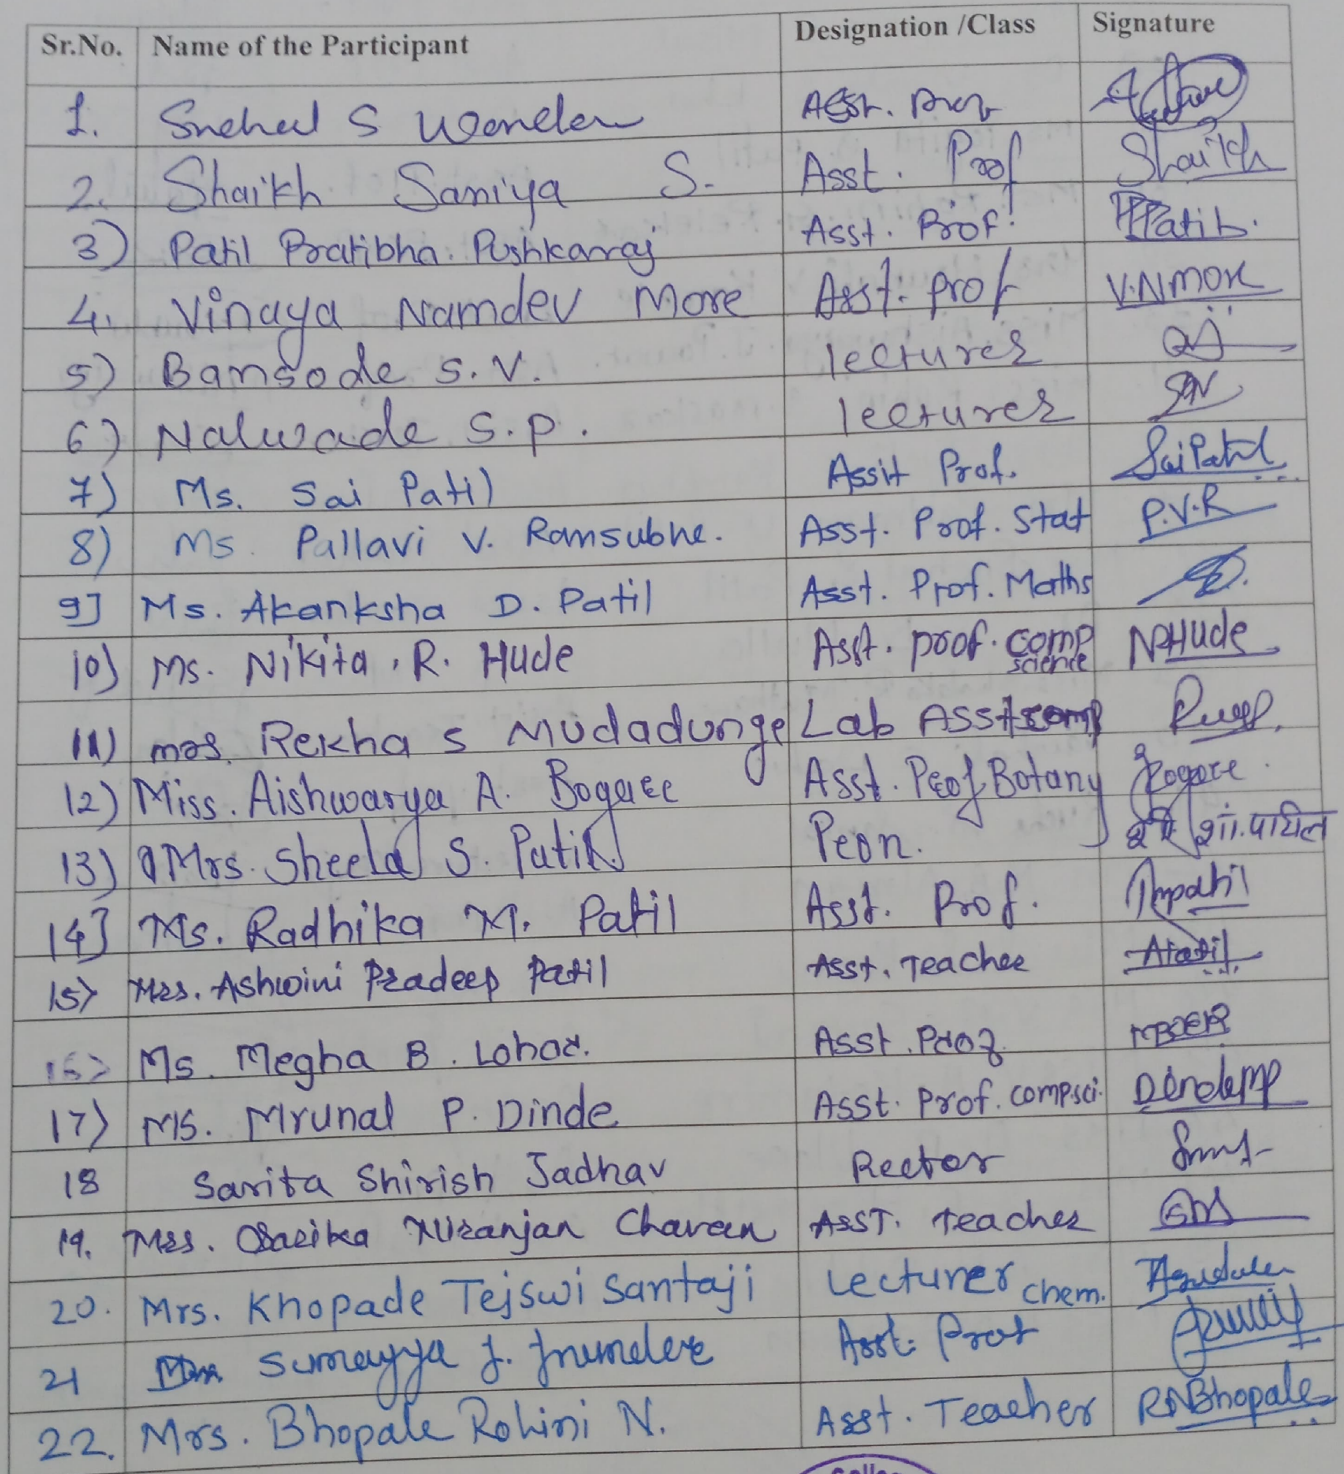 Sr.No. Name of the Participant Designation /Class Signature
1. Snehal S Asst. Prof
2. Shaikh Saniya S. Asst. Prof Shaikh
3) Patil Pratibha Pushkaraj Asst. Prof. PPPatil.
4. Vinaya Namdev More Asst. prof V.N.More
5) Bansode S.V. lecturer
6) Nalwade S.P. lecturer
7) Ms. Sai Patil Assit Prof. Sai Patil
8) Ms. Pallavi V. Ramsubhe. Asst. Prof. Stat P.V.R
9] Ms. Akanksha D. Patil Asst. Prof. Maths
10) Ms. Nikita . R. Hude Asst. prof. comp science NRHude
11) mrs. Rekha S Mudadunge Lab Asst comp
12) Miss. Aishwarya A. Bogare Asst. Prof Botany Bogare
13) Mrs. Sheela S. Patil Peon. शां. पाटील
14] Ms. Radhika M. Patil Asst. Prof. Rmpatil
15) Mrs. Ashwini Pradeep Patil Asst. Teacher APatil
16) Ms. Megha B. Lohar. Asst. Prof.
17) Ms. Mrunal P. Dinde Asst. Prof. comp.sci. Dindemp
18 Sarita Shirish Jadhav Rector
19. Mrs. Sarika Niranjan Chavan ASST. Teacher
20. Mrs. Khopade Tejswi Santaji Lecturer chem.
21 Sumayya J. Asst. Prof
22. Mrs. Bhopale Rohini N. Asst. Teacher RNBhopale